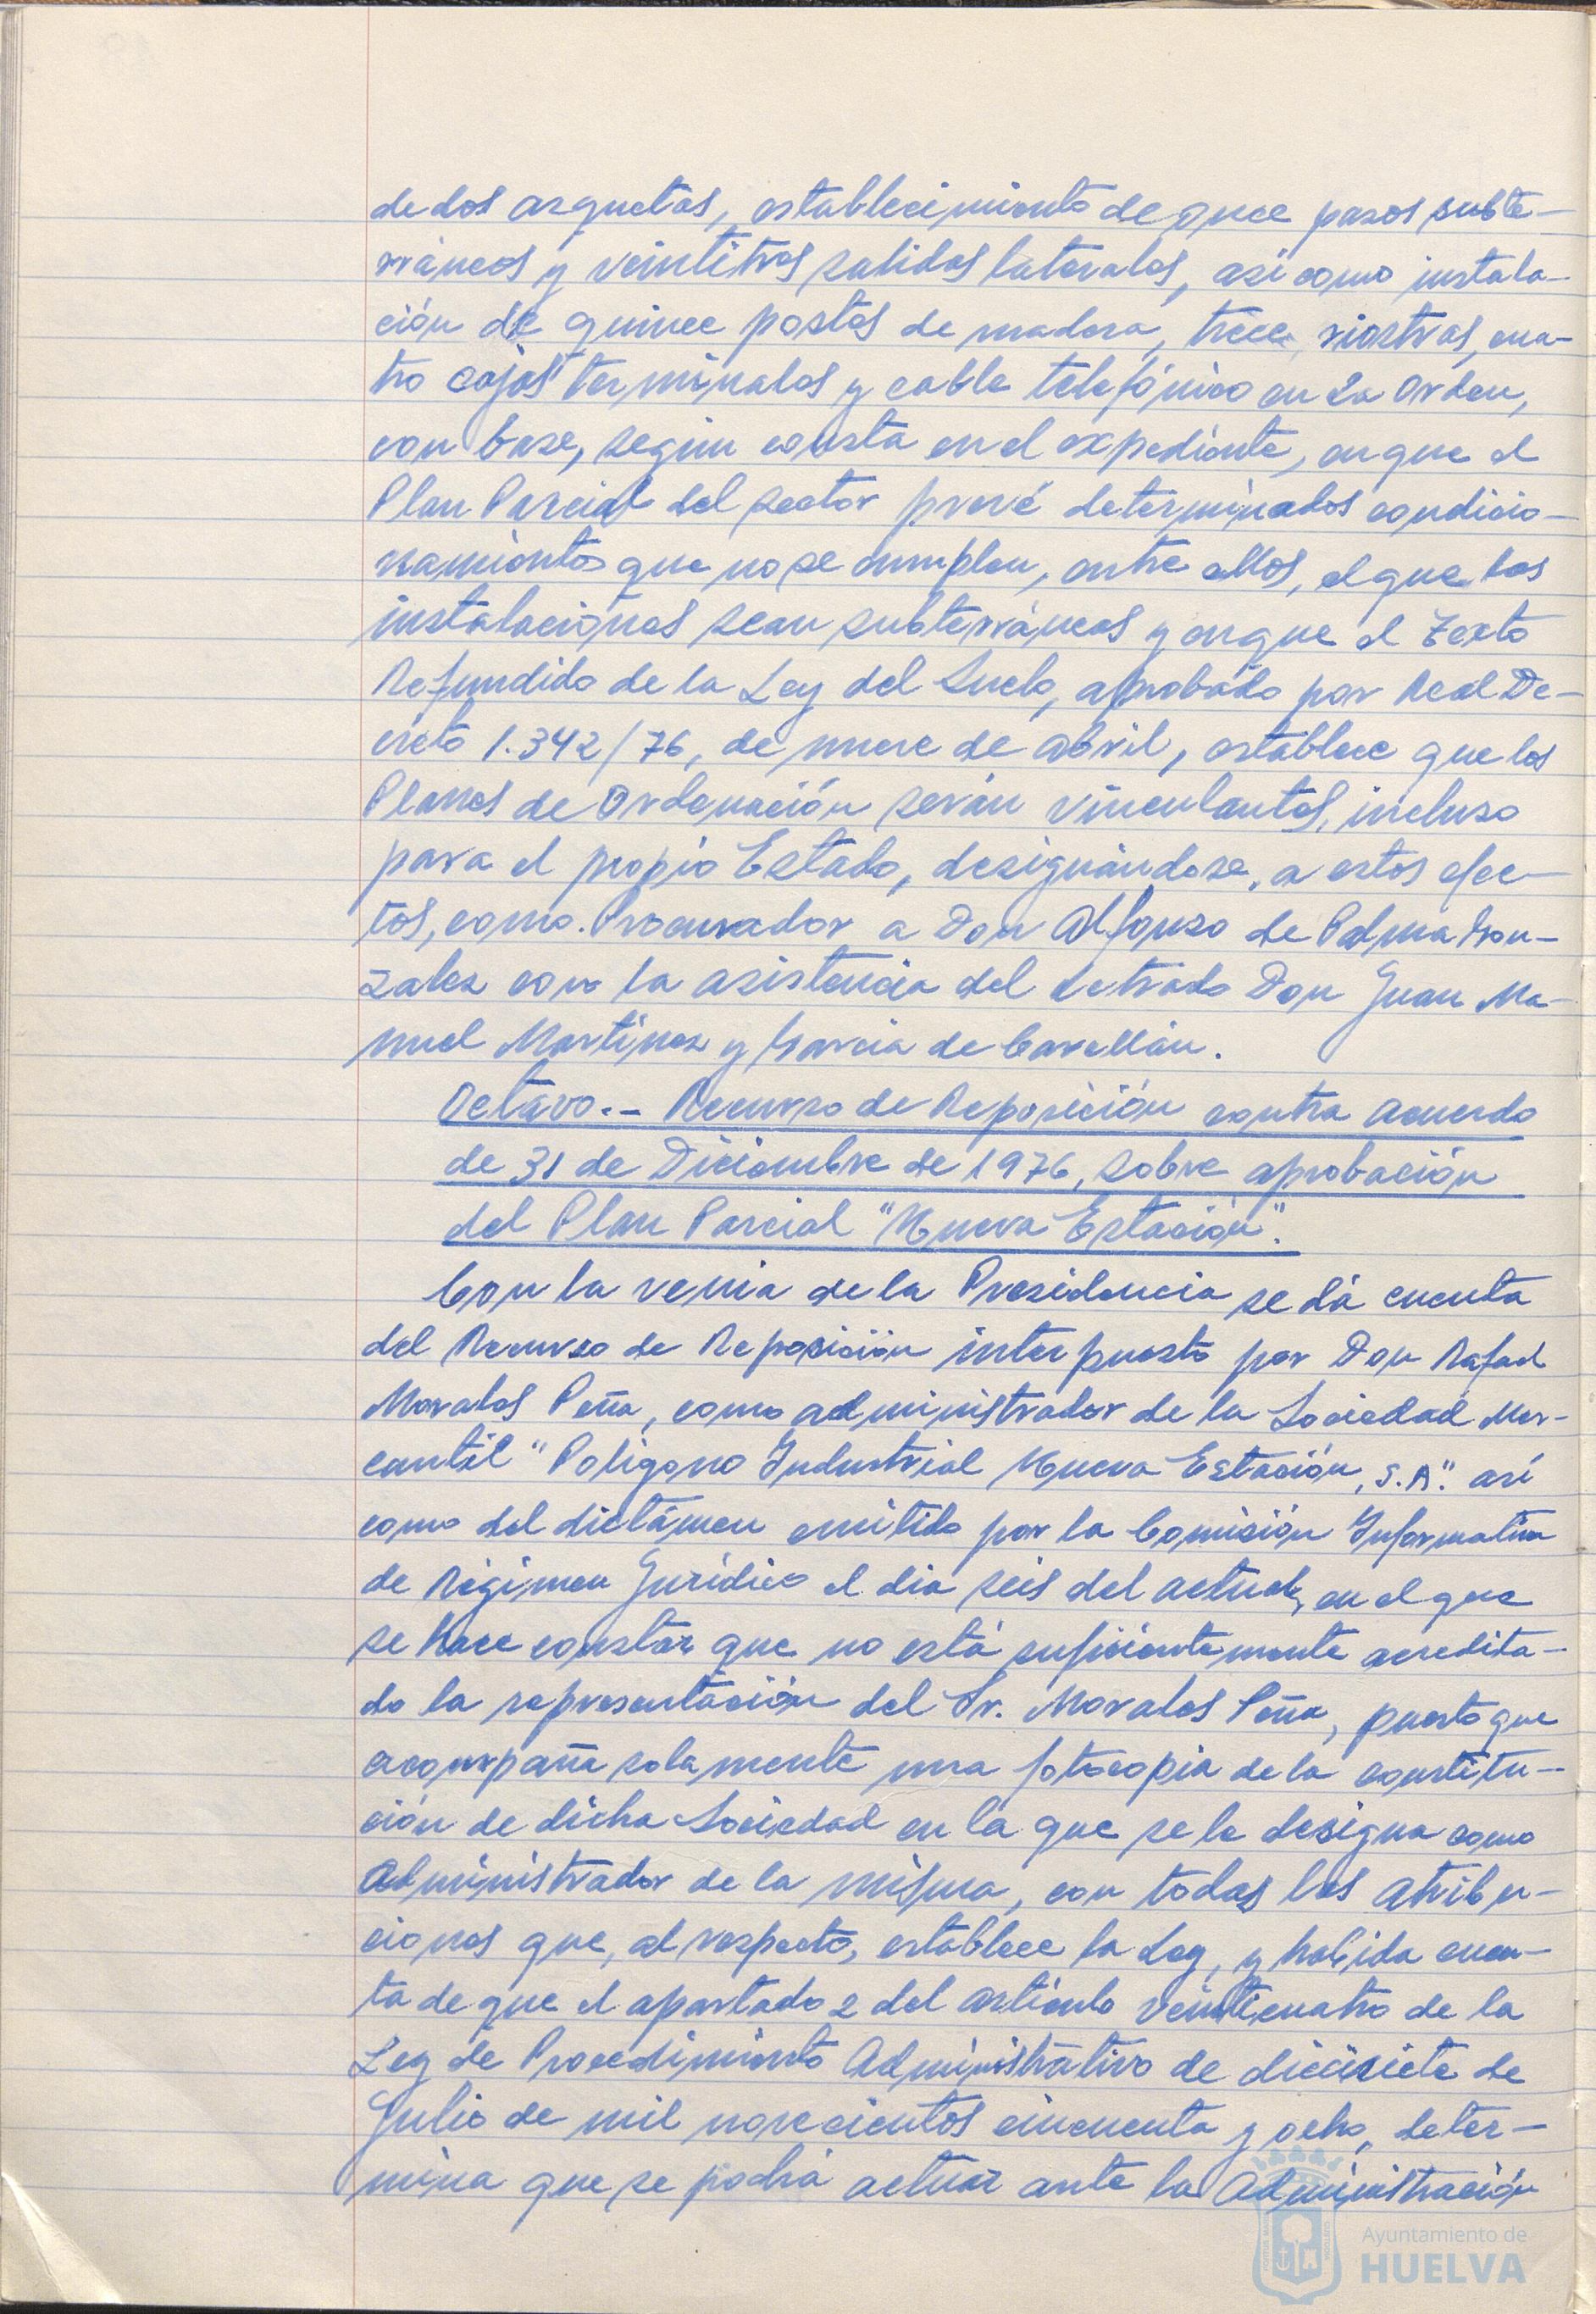 de dos arquetas, establecimiento de once pasos subte-
rráneos y veintitres salidas laterales, así como instala-
ción de quince postes de madera, trece riostras, cua-
tro cajas terminales y cable telefónico en La Orden,
con base, según consta en el expediente, en que el
Plan Parcial del sector prevé determinados condicio-
namientos que no se cumplen, entre ellos, el que las
instalaciones sean subterráneas y en que el Texto
Refundido de la Ley del Suelo, aprobado por Real De-
creto 1.342/76, de nueve de abril, establece que los
Planes de Ordenación serán vinculantes, incluso
para el propio Estado, designándose, a estos efec-
tos, como Procurador a Don Alfonso de Palma Gon-
zalez con la asistencia del Letrado Don Juan Ma-
nuel Martinez y Garcia de Carellán.
Octavo.- Recurso de Reposición contra acuerdo
de 31 de Diciembre de 1976, sobre aprobación
del Plan Parcial "Nueva Estación".
Con la venia de la Presidencia se dá cuenta
del Recurso de Reposición interpuesto por Don Rafael
Morales Peña, como administrador de la Sociedad Mer-
cantil "Poligono Industrial Nueva Estación, S.A". así
como del dictámen emitido por la Comisión Informativa
de Régimen Jurídico el dia seis del actual, en el que
se hace constar que no está suficientemente acredita-
do la representación del Sr. Morales Peña, puesto que
acompaña solamente una fotocopia de la constitu-
ción de dicha Sociedad en la que se le designa como
Administrador de la misma, con todas las atribu-
ciones que, al respecto, establece la Ley, y habida cuen-
ta de que el apartado 2 del artículo veinticuatro de la
Ley de Procedimiento Administrativo de diecisiete de
Julio de mil novecientos cincuenta y ocho, deter-
mina que se podrá actuar ante la Administración
Ayuntamiento de
HUELVA